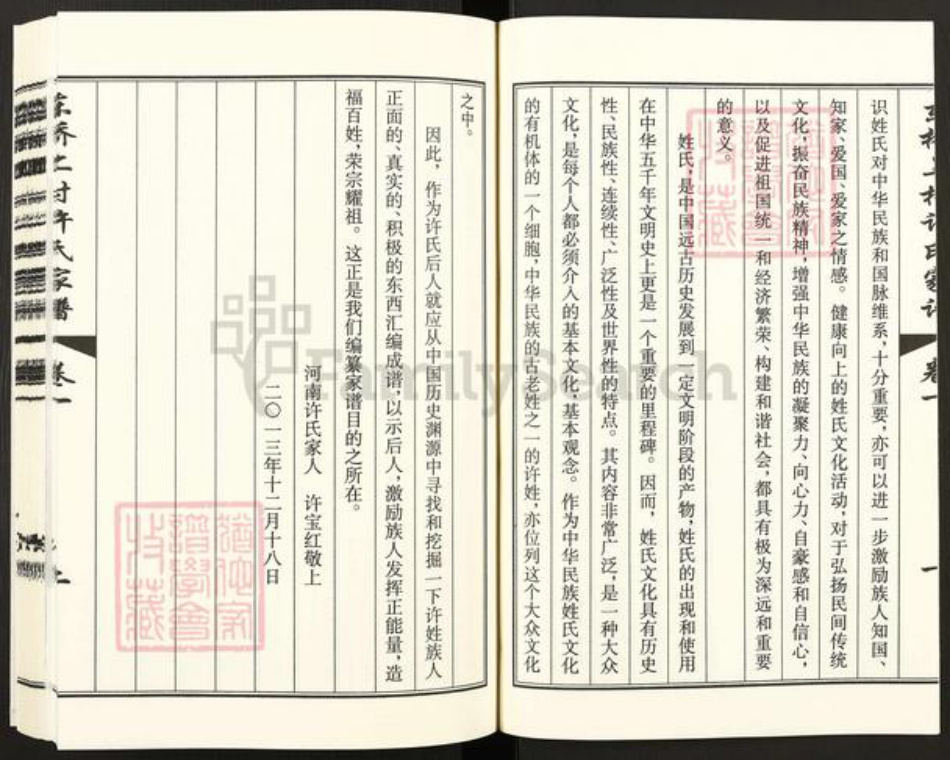 识姓氏对中华民族和国脉维系,十分重要,亦可以进一步激励族人知国、
知家、爱国、爱家之情感。健康向上的姓氏文化活动,对于弘扬民间传统
文化,振奋民族精神,增强中华民族的凝聚力、向心力、自豪感和自信心,
以及促进祖国统一和经济繁荣、构建和谐社会,都具有极为深远和重要
的意义。
姓氏,是中国远古历史发展到一定文明阶段的产物,姓氏的出现和使用
在中华五千年文明史上更是一个重要的里程碑。因而,姓氏文化具有历史
性、民族性、连续性、广泛性及世界性的特点。其内容非常广泛,是一种大众
文化,是每个人都必须介入的基本文化,基本观念。作为中华民族姓氏文化
的有机体的一个细胞,中华民族的古老姓之一的许姓,亦位列这个大众文化
之中。
因此,作为许氏后人就应从中国历史渊源中寻找和挖掘一下许姓族人
正面的、真实的、积极的东西汇编成谱,以示后人,激励族人发挥正能量,造
福百姓,荣宗耀祖。这正是我们编纂家谱目的之所在。
河南许氏家人 许宝红敬上
二〇一三年十二月十八日
村许氏家谱
卷一
FamilySearch
譜學會
收藏